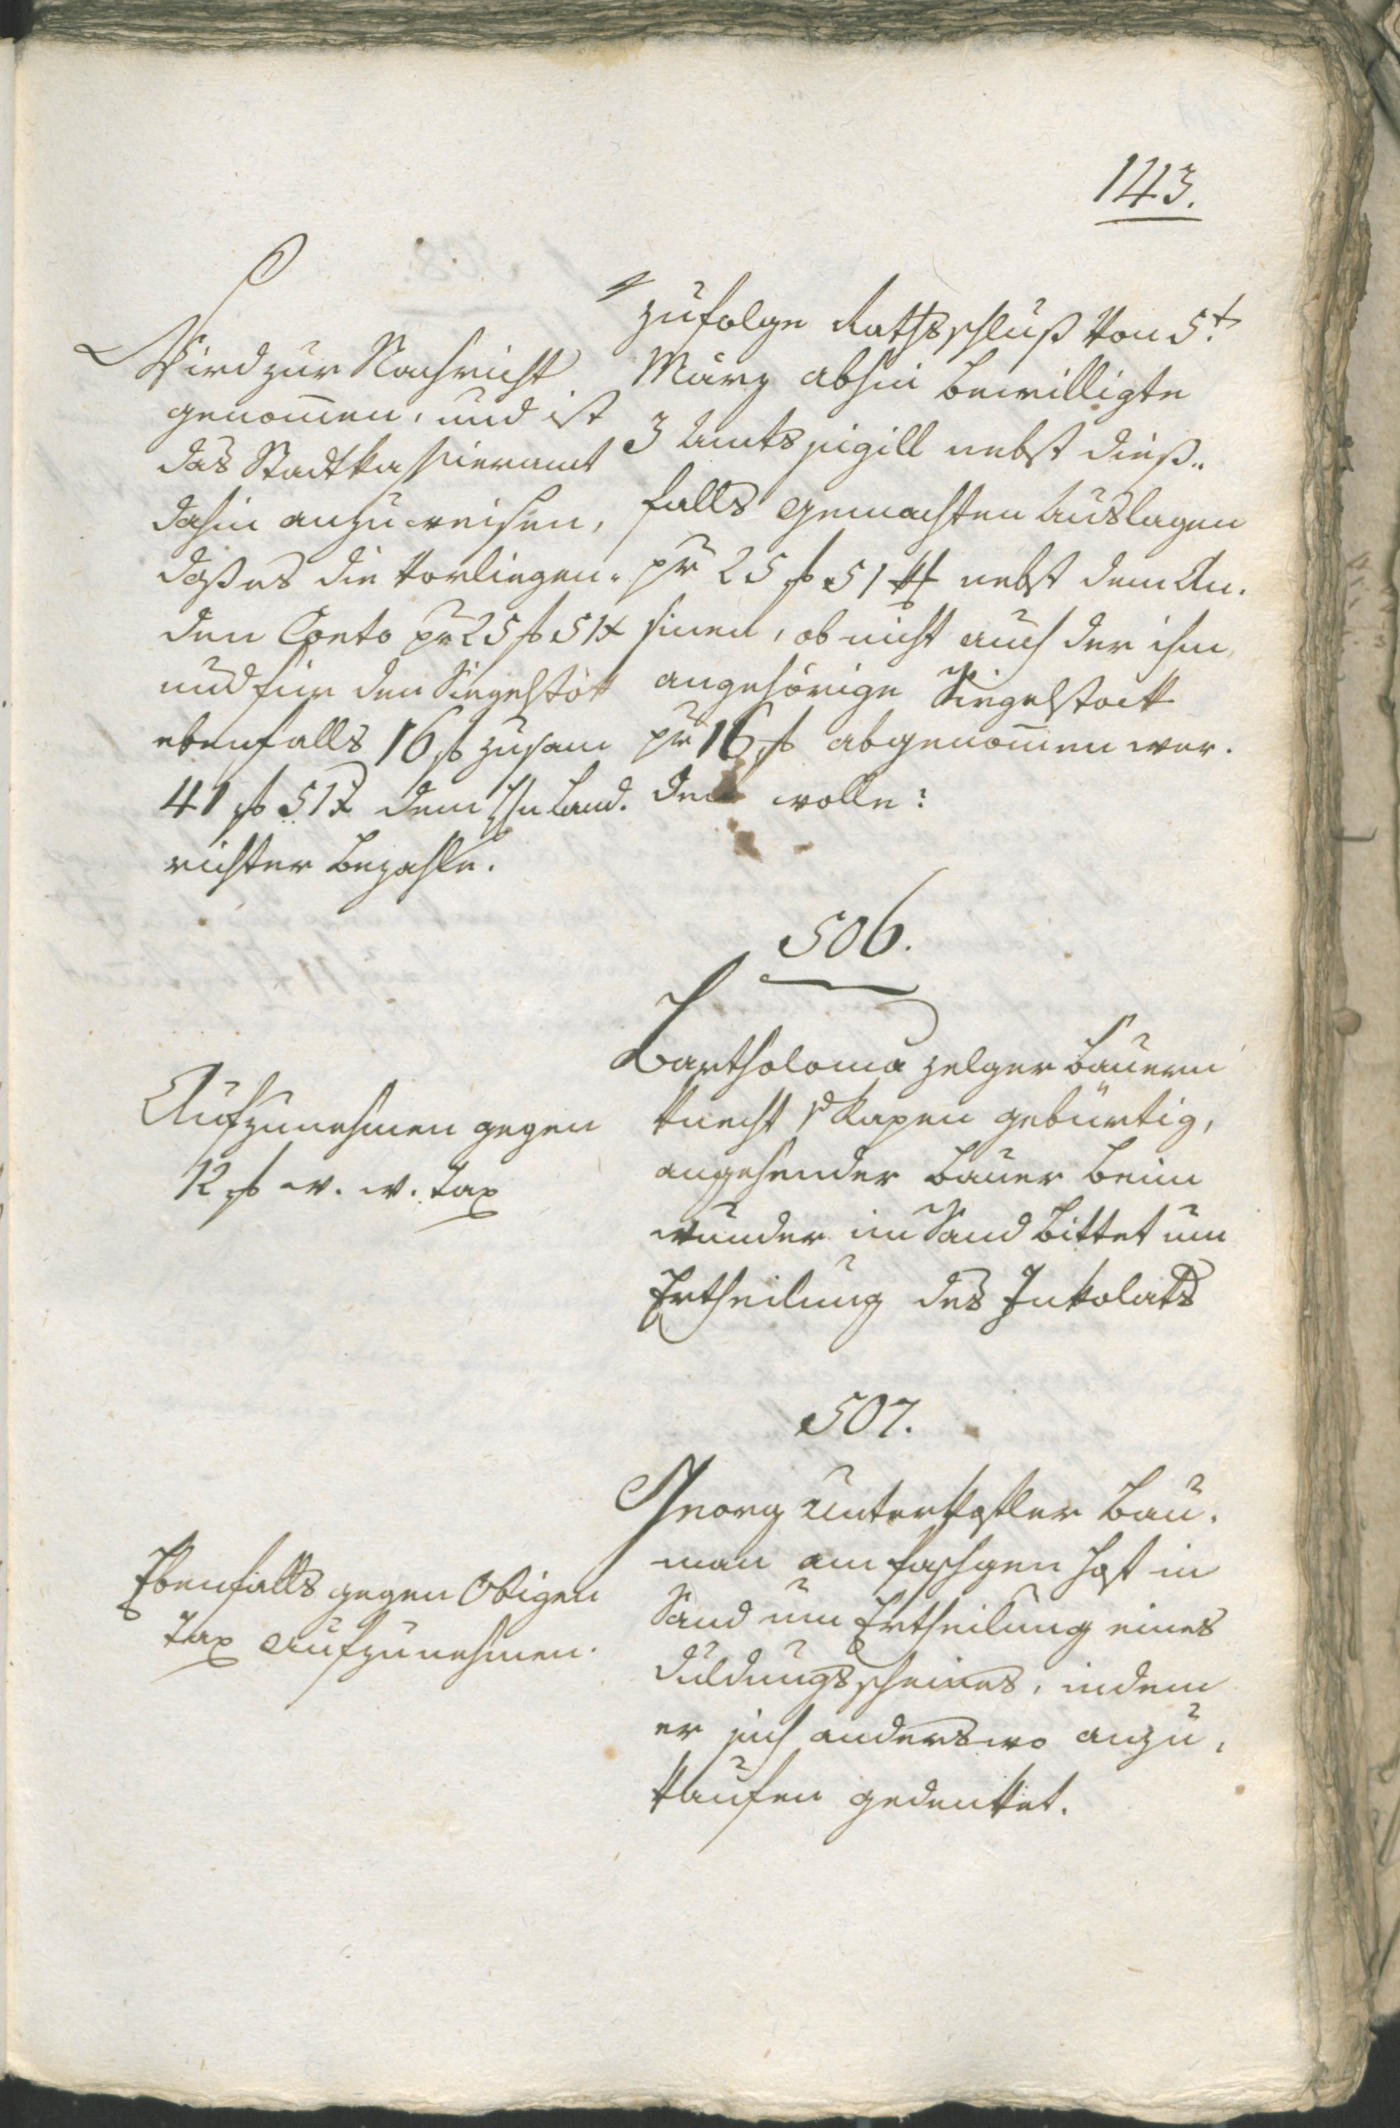 143.
Wird zur Nachricht
genom̄en, und ist
das Stadtkassieramt
dahin anzuweisen,
daß es die vorliegen-
den Conto pr 25 f 51 x
und für den Siegelstök
ebenfalls 16 f zusam
41 f 51 x dem Hn Land-
richter bezahle.
zufolge Rathsschluß von 5t
März abhin bewilligte
3 Amtssigill nebst dieß-
falls gemachten Auslagen
pr 25 f 51 x nebst dem An-
sinen, ob nicht auch der ihm
angehörige Siegelstock
pr 16 f abgenom̄en wer-
den wolle:
506.
Bartholomä Zelger Bauern
knecht v Kapen gebürtig,
angehender Bauer beim
Wunder im Sand bittet um
Ertheilung des Inkolats
Aufzunehmen gegen
12 f w. w. Tax
507.
Georg Unterkofler Bau-
man am Hof in
Sand um Ertheilung eines
Duldungsscheines, indem
er sich anderswo anzu-
kaufen gedenket.
Ebenfalls gegen Obigen
Tax aufzunehmen.